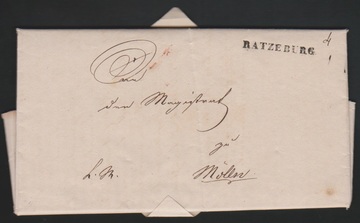 RATZEBURG
An
den Magistrat
zu
L. M. Mölln